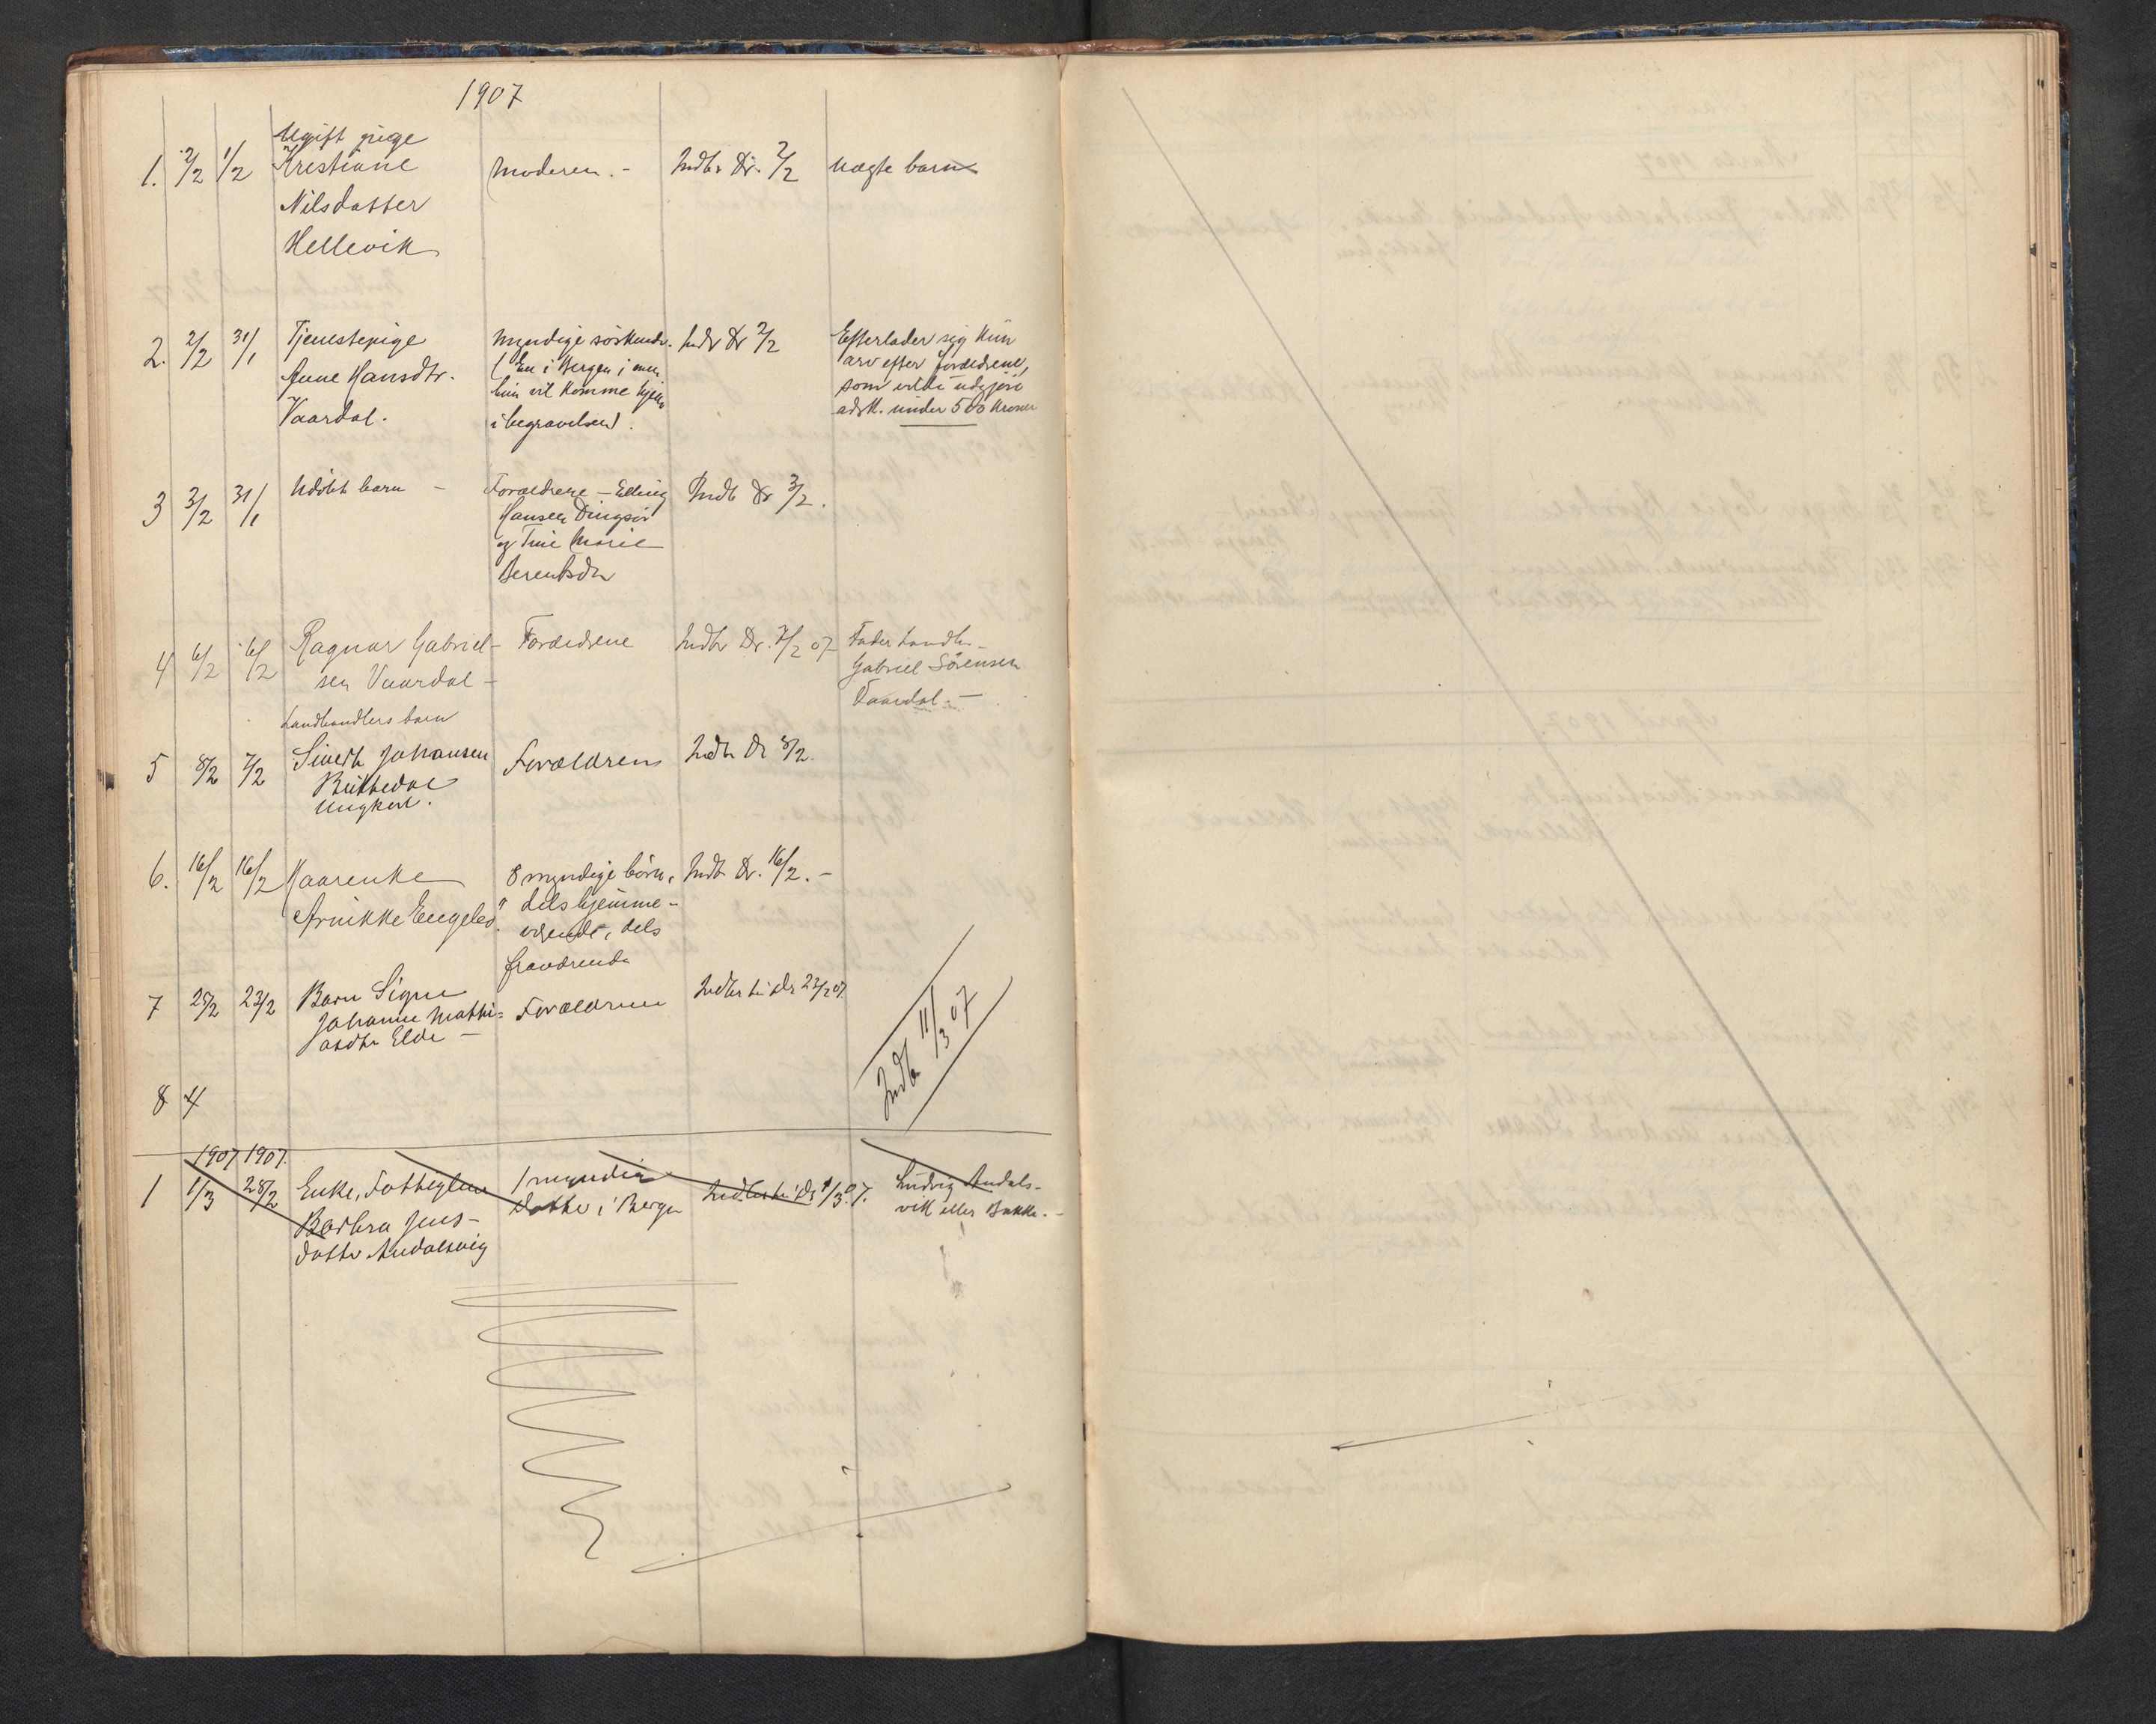 1907
1. 2/2 1/2 Ugift pige
Kristiane
Nilsdatter
Hellevik
Moderen. -
Indb. Dr. 2/2
Uægte barn
2. 2/2 31/1 Tjenestepige
Anne Hansdtr.
Vaardal.
Myndige søskende.
(En i Bergen,
hun vil komme hjem
i begravelsen).
Indb Dr 2/2
Efterlader sig kun
arv efter forældrene,
som vilde udgjøre
adsk. under 500 kroner
3 3/2 31/1 Udøbt barn -
Forældrene - Elling
Hansen Dingsør
og Marie
Berentsdtr
Indb Dr 3/2.
4 6/2 6/2 Ragnar Gabriel-
sen Vaardal -
Landhandlers barn
Forældrene
Indb Dr. 7/2 07
Fader Landh.
Gabriel Sørensen
Vaardal. -
5 8/2 7/2 Sivert Johansen
Ungkarl.
Forældrene
Indb Dr 8/2.
6. 16/2 16/2 Kaarenke
Engebø.
8 myndige børn,
dels hjemme-
værende, dels
fraværende
Indb Dr. 16/2. -
7 25/2 23/2 Barn Signe
Johanne Matthi-
asdtr Elde -
Forældrene
Indb 11/3 07
8 4
1907 1907.
1 1/3 28/2 Enke, Fattiglem
Barbra Jens-
datter Andalsvig
1 myndig
datter i Bergen
1/3 07.
Ludvig Andals-
vik eller Bakke. -